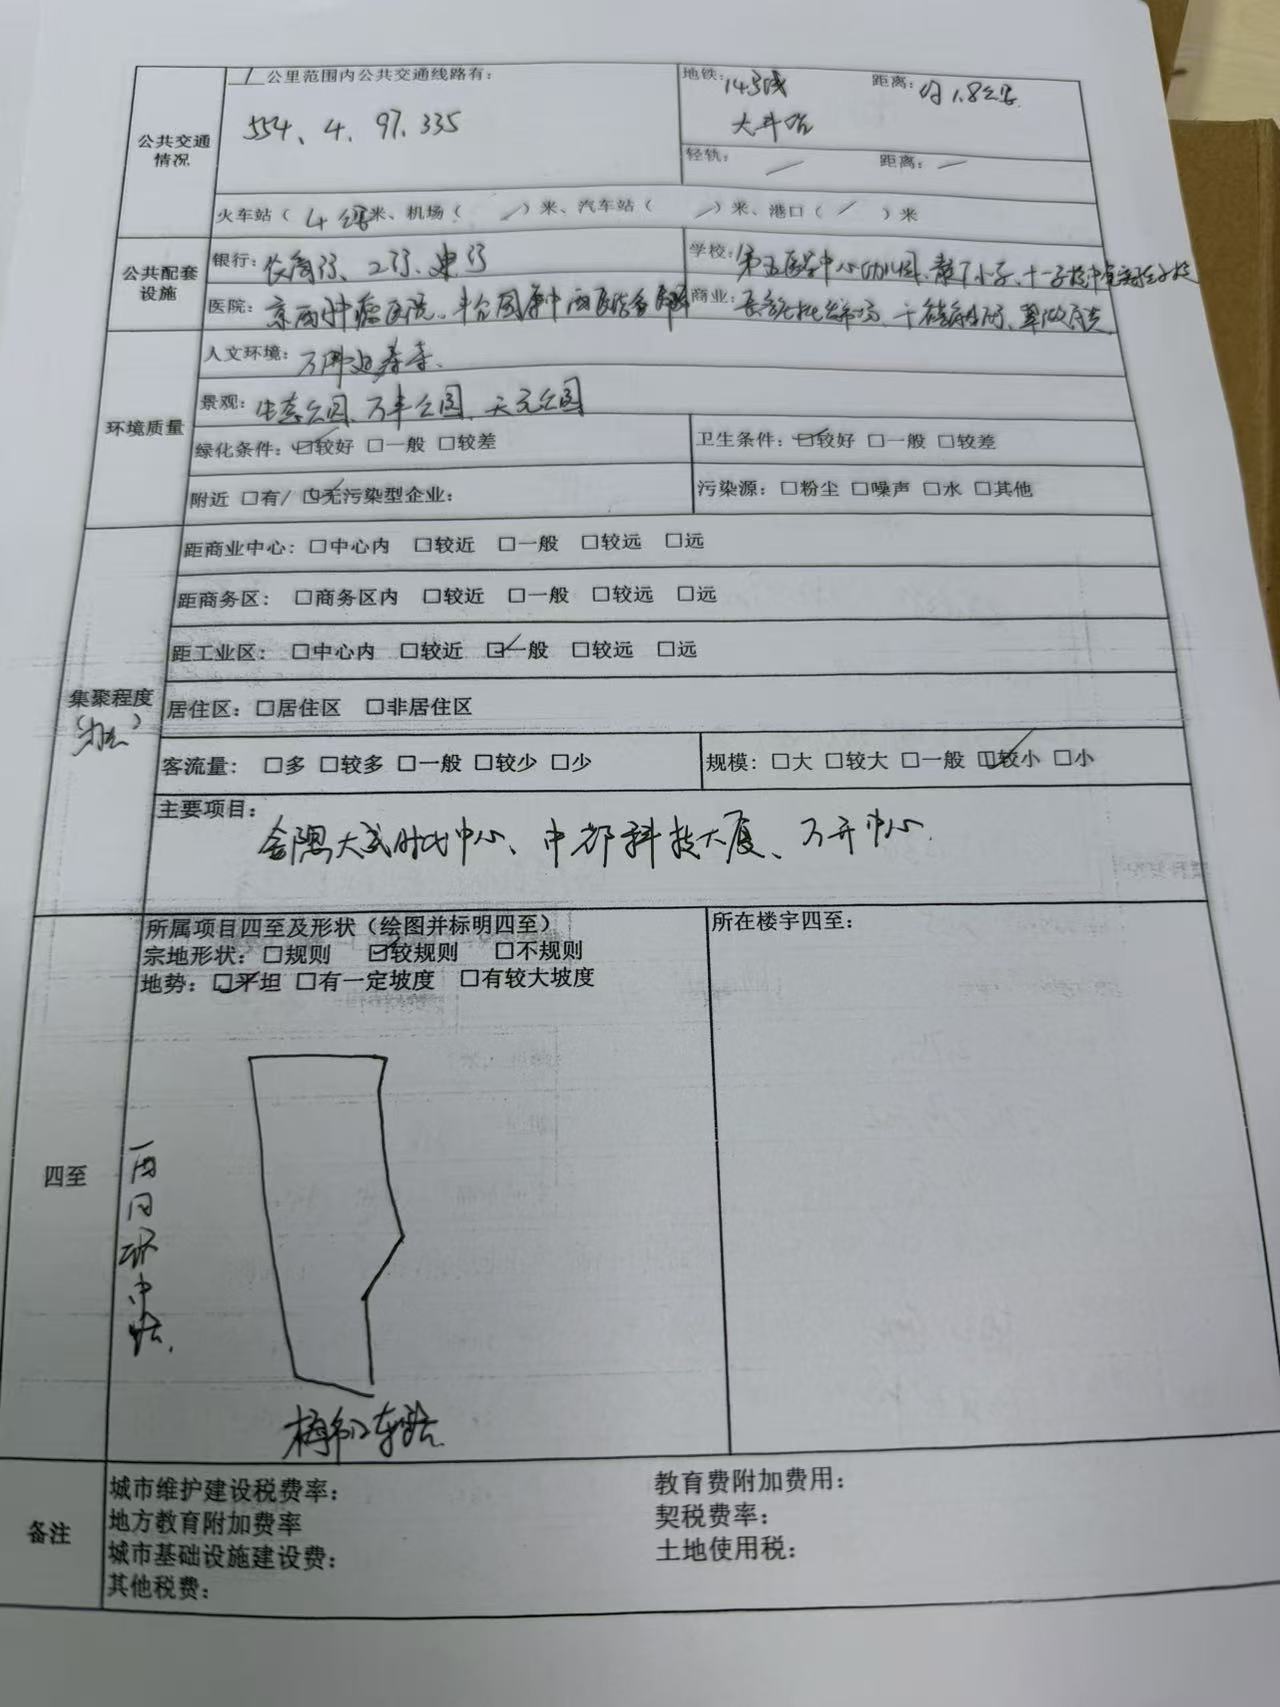 1 公里范围内公共交通线路有:
554、4、97、335
地铁: 14号线 距离: 约1.8公里
大井站
公共交通情况
轻轨: / 距离: /
火车站( 4公里 米、机场( / )米、汽车站( / )米、港口( / )米
公共配套设施
银行: 农商行、工行、建行
学校: 第五医学中心幼儿园、 小学、十一学校中
医院: 京西肿瘤医院、丰台国康中西医结合医院
商业:
环境质量
人文环境: 万佛延寿寺、
景观: 生态公园、万丰公园、天元公园
绿化条件: ☑较好 □一般 □较差
卫生条件: ☑较好 □一般 □较差
附近 □有/ ☑无污染型企业:
污染源: □粉尘 □噪声 □水 □其他
集聚程度
(办公)
距商业中心: □中心内 □较近 □一般 □较远 □远
距商务区: □商务区内 □较近 □一般 □较远 □远
距工业区: □中心内 □较近 ☑一般 □较远 □远
居住区: □居住区 □非居住区
客流量: □多 □较多 □一般 □较少 □少
规模: □大 □较大 □一般 ☑较小 □小
主要项目:
金隅大成时代中心、中都科技大厦、万开中心
四至
所属项目四至及形状（绘图并标明四至）
宗地形状: □规则 ☑较规则 □不规则
地势: ☑平坦 □有一定坡度 □有较大坡度
西四环中路
梅市口东路
所在楼宇四至:
备注
城市维护建设税费率:
地方教育附加费率
城市基础设施建设费:
其他税费:
教育费附加费用:
契税费率:
土地使用税: